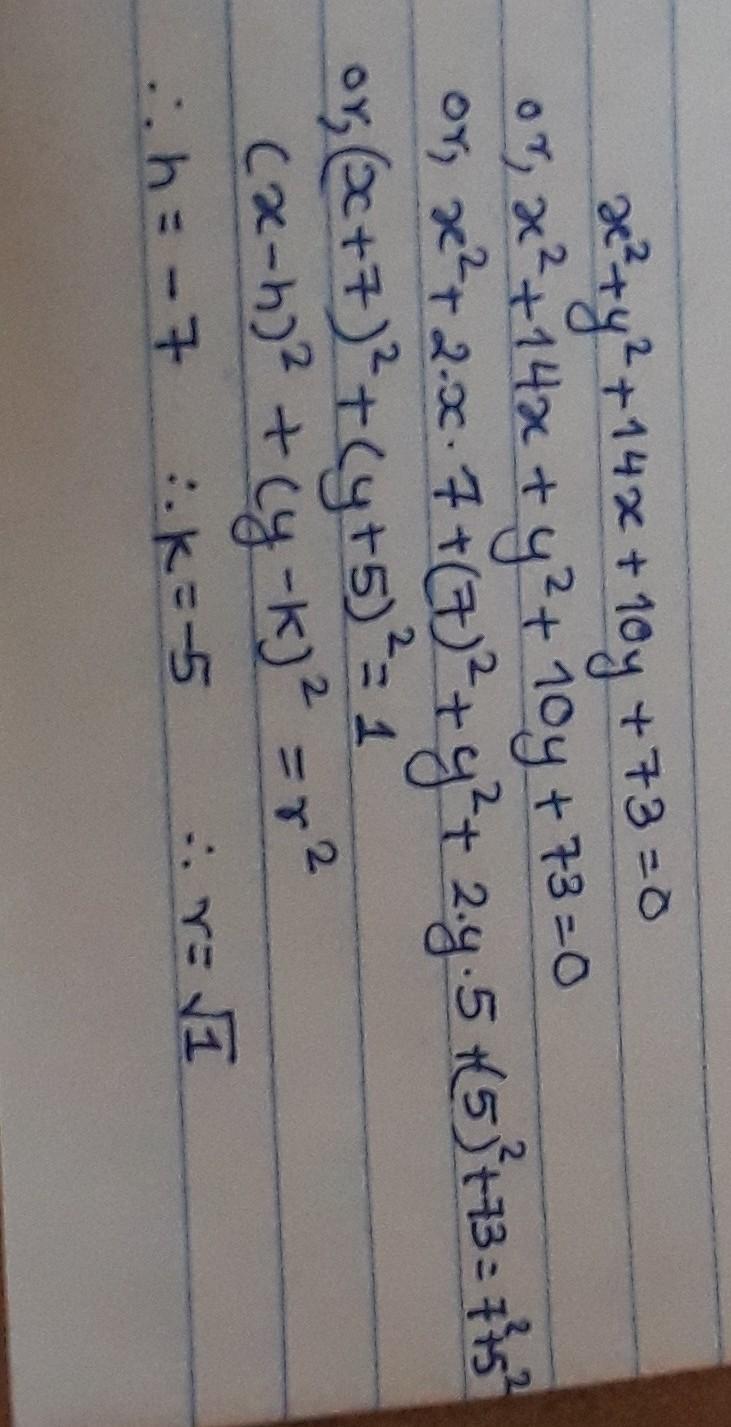 x²+y²+14x+10y+73=0
or, x²+14x+y²+10y+73=0
or, x²+2.x.7+(7)²+y²+2.y.5+(5)²+73=7²+5²
or,(x+7)²+(y+5)²=1
(x-h)²+(y-k)²=r²
∴h=-7 ∴k=-5 ∴r=√1